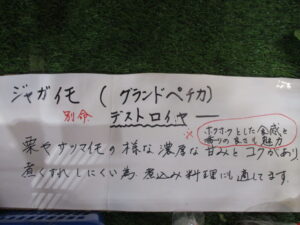 ジャガイモ (グランドペチカ)
別命 デストロイヤー
※ホクホクとした食感と
香りの良さも魅力
栗やサツマイモの様な濃厚な甘みとコクがあり
煮くずれしにくい為、煮込み料理にも適してます。